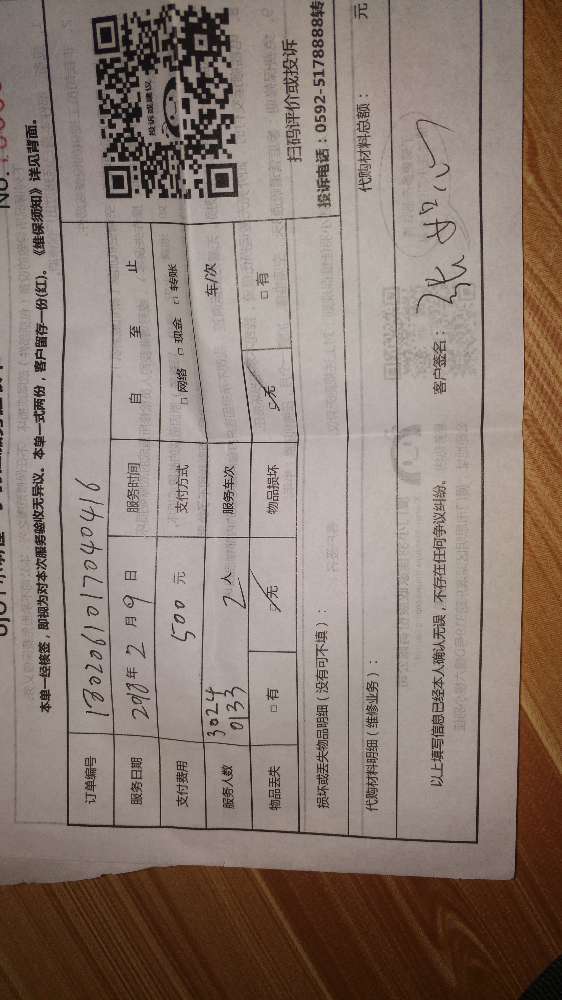 本单一经核签，即视为对本次服务验收无异议。本单一式两份，客户留存一份(红)。《维保须知》详见背面。
订单编号 180209101070040416
服务日期 2018年 2 月 9 日 服务时间 自 至 止
支付费用 500 元 支付方式 □网络 □现金 □转账
服务人数 3024 0133 2 人 服务车次 车/次
物品丢失 □有 ☑无 物品损坏 ☑无 □有
投诉或建议
扫码评价或投诉
投诉电话：0592-5178888转
损坏或丢失物品明细（没有可不填）：
代购材料明细（维修业务）： 代购材料总额： 元
以上填写信息已经本人确认无误，不存在任何争议纠纷。 客户签名：